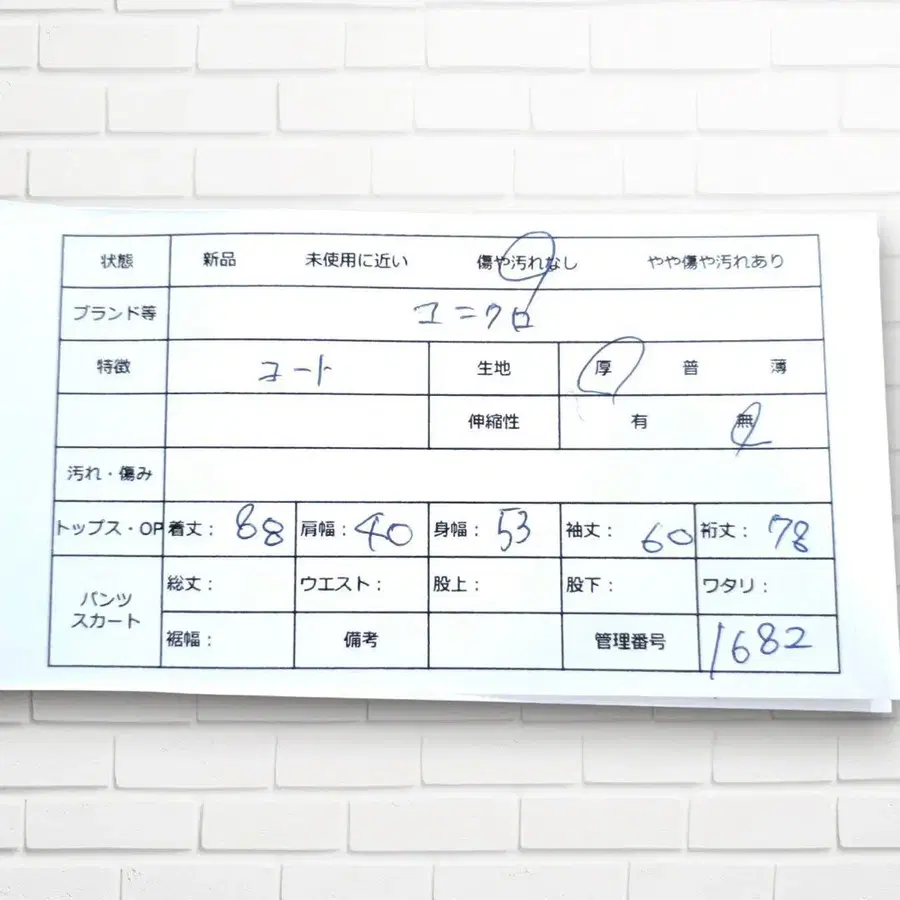 状態 新品 未使用に近い 傷や汚れなし やや傷や汚れあり
ブランド等 ユニクロ
特徴 コート 生地 厚 普 薄
伸縮性 有 無
汚れ・傷み
トップス・OP 着丈： 88 肩幅： 40 身幅： 53 袖丈： 60 裄丈： 78
パンツ スカート 総丈： ウエスト： 股上： 股下： ワタリ：
裾幅： 備考 管理番号 1682